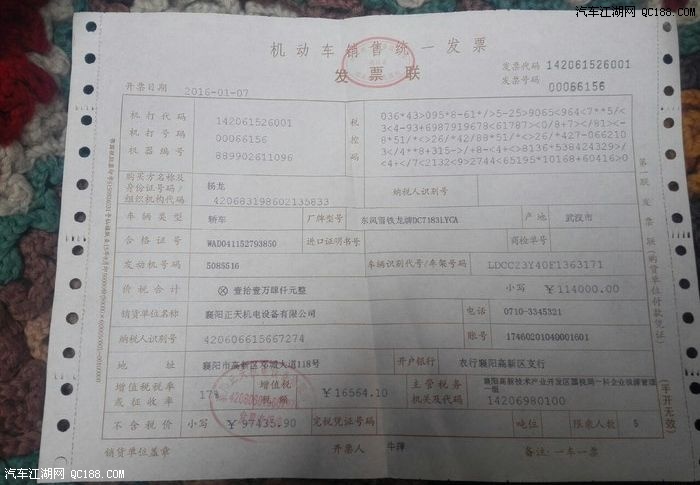 汽车江湖网 QC188.COM
机动车销售统一发票
发票联
发票代码 142061526001
发票号码 00066156
开票日期 2016-01-07
机打代码 142061526001
机打号码 00066156
机器编号 889902611096
税控码
购买方名称及身份证号码/组织机构代码 杨龙 420683198602135833
纳税人识别号
车辆类型 轿车 厂牌型号 东风雪铁龙牌DC7183LYCA 产地 武汉市
合格证号 WAD041152793850 进口证明书号 商检单号
发动机号码 5085516 车辆识别代号/车架号码 LDCC23Y40F1363171
价税合计 ⊗ 壹拾壹万肆仟元整 小写 ￥114000.00
销货单位名称 襄阳正天机电设备有限公司 电话 0710-3345321
纳税人识别号 420606615667274 账号 17460201040001601
地址 襄阳市高新区邓城大道118号 开户银行 农行襄阳高新区支行
增值税税率或征收率 17% 增值税税额 ￥16564.10 主管税务机关及代码 14206980100
不含税价 小写 ￥97435.90 完税凭证号码 吨位 限乘人数 5
销货单位盖章 开票人 牛萍 备注:一车一票
第一联 发票联(购货单位付款凭证)
(手开无效)
汽车江湖网 QC188.COM
汽车江湖网 QC188.COM